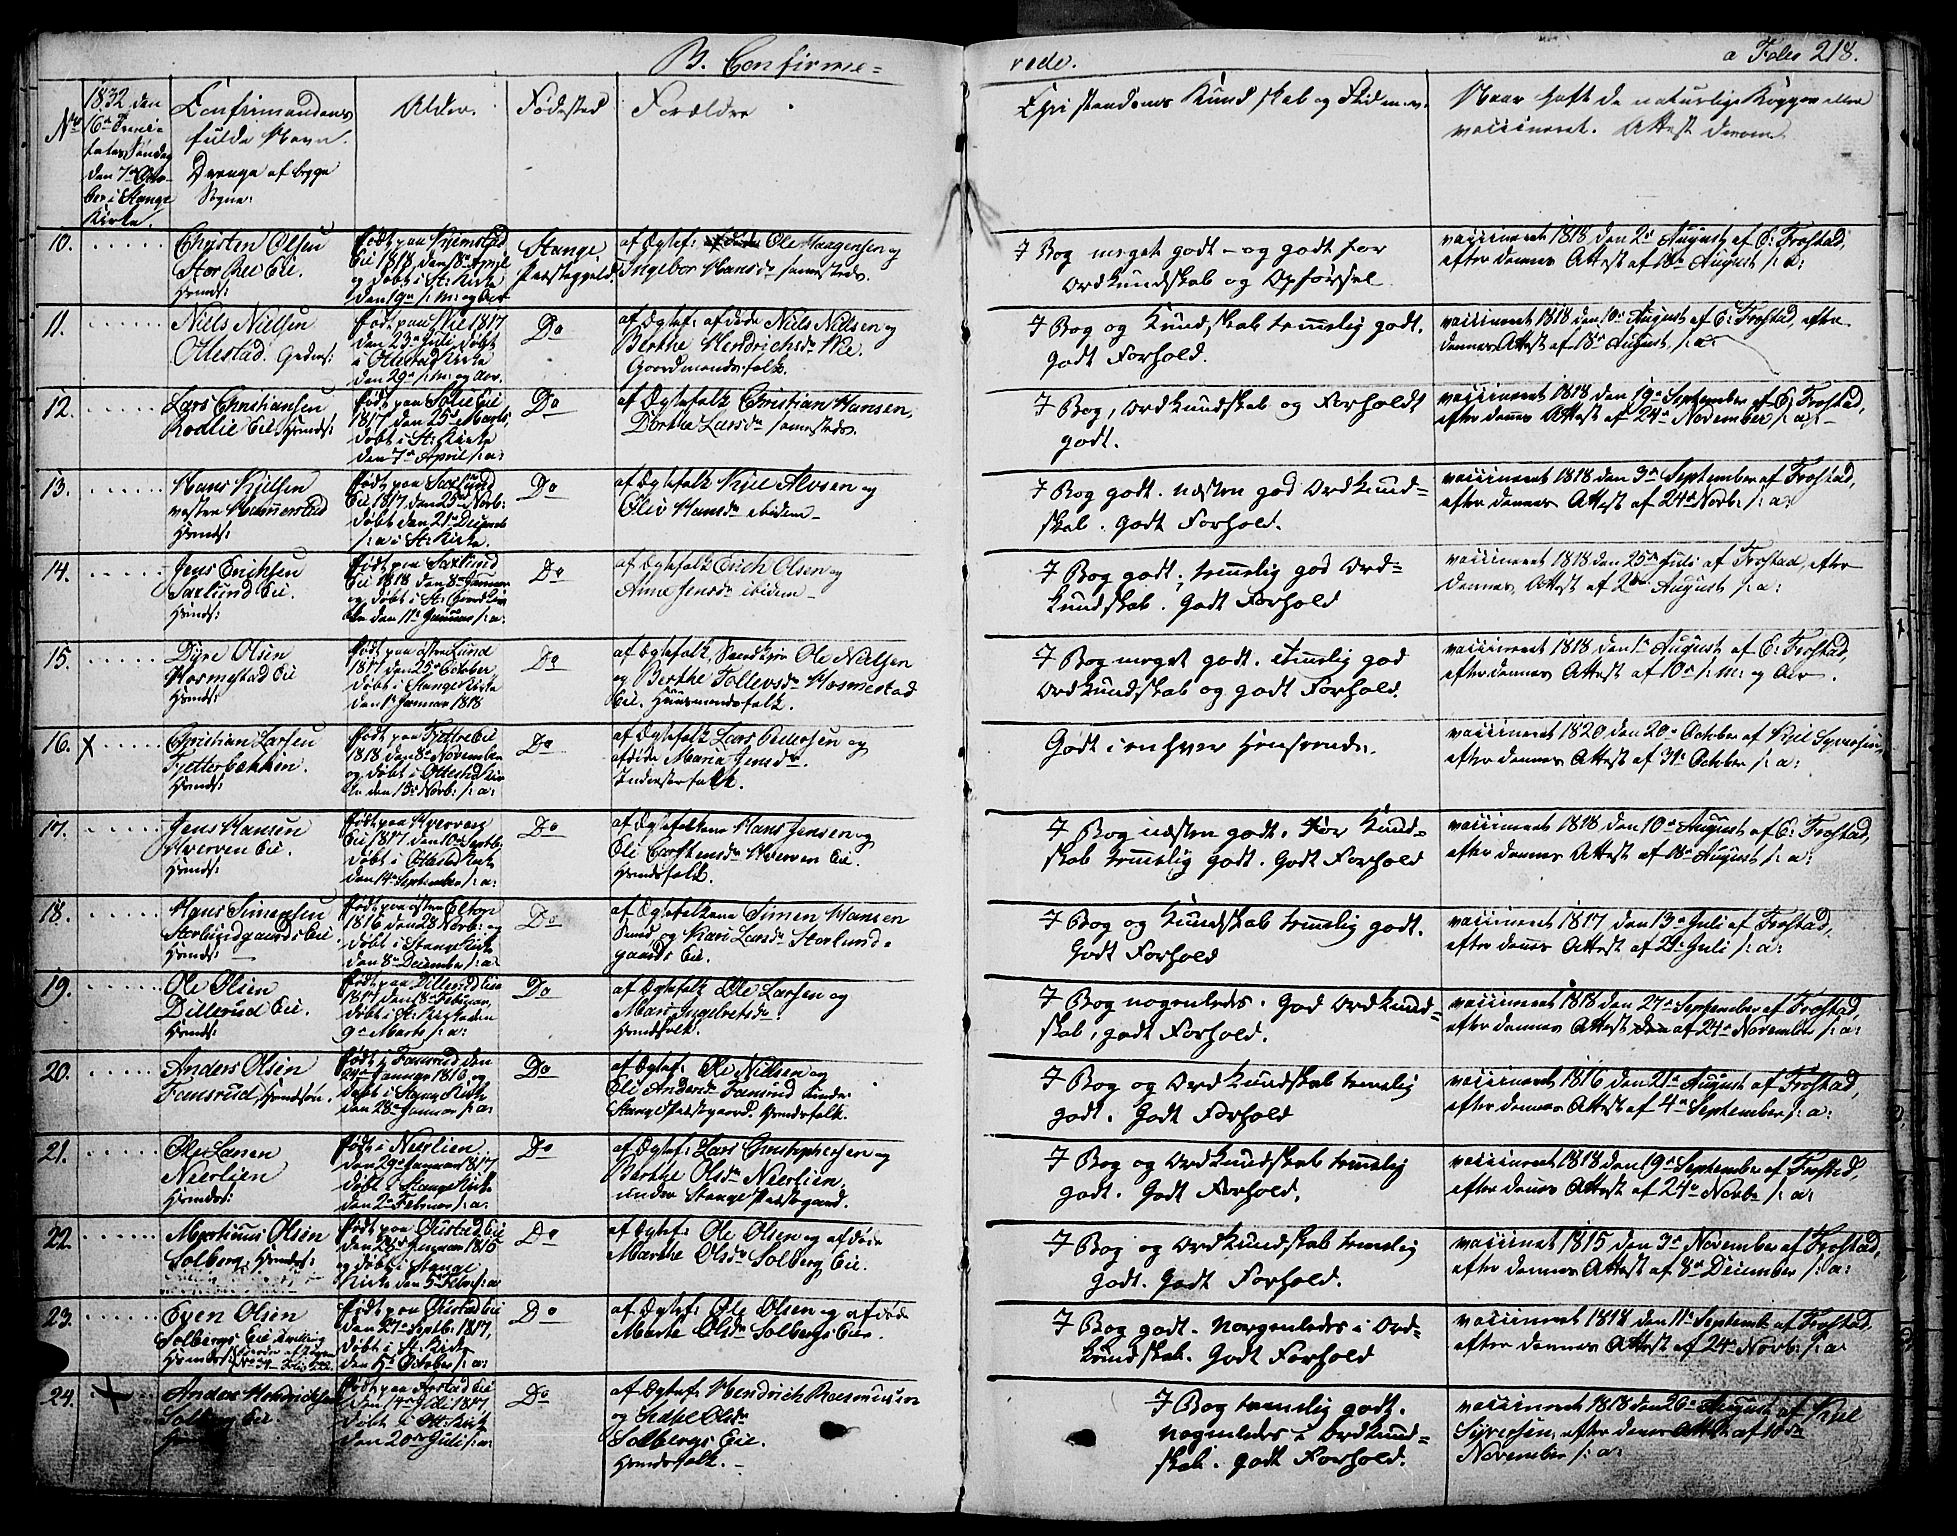 B. Confirme=
rede.
a Folio 218.
No
1832 den
16de Trini=
tatis Søndag
den 7de Octo-
ber i Stange
Kirke.
Confirmandens
fulde Navn.
Drenge af begge
Sogne:
Alder.
Fødested
Forældre
Christendoms Kundskab og Flid m.v.
Naar haft de naturlige Kopper eller
vaccineret. Attest derom
10.
Christen Olsen
Eie.
født paa
Eie 1818 den 18de April
og døbt i St: Kirke
den 19de /:m: og Aar
Stange
Præstegjeld.
af Ægtef: Ole Haagensen og
Ingebor Hansdr sammesteds.
I Bog meget godt - og godt for
Ordkundskab og Opførsel
vaccineret 1818 den 2den August af E: Frostad,
efter dennes Attest af 18de August /:a:
11.
Niels Nielsen
Ottestad.
født paa Wie 1817
den 23de Juli, døbt
i Ottestad Kirke
den 29de /:m: og Aar.
Do
af Ægtef: afdøde Niels Nielsen og
Berthe Hendrichsdr Wie.
Gaardmandsfolk.
I Bog og Kundskab temmelig godt.
godt Forhold.
vaccineret 1818 den 10de August af E: Frostad, efter
dennes Attest af 18de August /:a:
12.
Lars Christiansen
Rodlie Eie Huusds:
født paa Eie,
1817 den 25de Marts,
døbt i St: Kirke
den 7de April /:a:
Do
af Ægtefolk Christian Hansen,
Dorthe Larsdr sammesteds.
I Bog, Ordkundskab og Forholdt
godt.
vaccineret 1818 den 19de September af E: Frostad,
efter dennes Attest af 24de November /:a:-
13.
Hans Kjelsen
vestre Hammerstad
Huusds:
født paa Saxlund
Eie 1817 den 25de Novb:
døbt den 21de Decemb
/:a: i St: Kirke.
Do
af Ægtefolk Kjel Alvsen og
Oliv Hansdr ibidem-
I Bog godt. næsten god Ordkund=
skab. Godt Forhold.
vaccineret 1818 den 3de September af Frostad,
efter dennes Attest af 24de Novb: /:a:
14.
Jens Erichsen
Saxlund Eie.
Huusds:
født paa Saxlund
Eie 1818 den 8de Januar
og døbt i St:
den 11te Januar /:a:
Do
af Ægtefolk Erich Olsen og
Anne Jensdr ibidem-
I Bog godt; temmelig god Ord=
kundskab. Godt Forhold
vaccineret 1818 den 25de Juli af Frostad, efter
dennes Attest af 2den August /:a:
15.
Dyre Olsen
Hosmestad Eie
Huusds:
født paa østre Lund
1817 den 25de October,
døbt i Stange Kirke
den 1ste Januar 1818
Do
af Ægtefolk, Ole Nielsen
og Berthe Tollevsdr Hosmestad
Eie. Huusmandsfolk.
I Bog meget godt. temmelig god
Ordkundskab og godt Forhold.
vaccineret 1818 den 1ste August af E: Frostad,
efter dennes Attest af 10de /:m: og Aar.
16. X
Christian Larsen
Tjetterbækken.
Huusds:
født paa Eie
1818 den 8de November
og døbt i Ottestad Kir
ke den 13de Novb: /:a:
Do
af Ægtefolk Lars Pedersen og
afdøde Maria Jensdr.
Inderstfolk.
Godt i en hver Henseende.
vaccineret 1820 den 20de October af Kjel Syversen,
efter dennes Attest af 31te October /:a:
17.
Jens Hansen
Hverven Eie.
Huusds:
født paa Hverven
Eie 1817 den 10de Septb:
døbt i Ottestad Kirke
den 14de September /:a:
Do
af Ægtefolkene Hans Jensen og
Eli Carstensdr Hverven Eie.
Huusfolk.
I Bog næsten godt. For Kund=
skab temmelig godt. Godt Forhold
vaccineret 1818 den 10de August af E: Frostad,
efter dennes Attest af 18de August /:a:
18.
Hans Simensen
Storlundgaards Eie
Huusds:
født paa østre Elton
1816 den 28 Novb: og
døbt i Stange Kirke
den 8de December /:a:
Do
af Ægtefolkene Simen Hansen
Smed og Kari Larsdr Storlund=
gaards Eie.
I Bog og Kundskab temmelig godt.
Godt Forhold
vaccineret 1817 den 13de Juli af Frostad,
efter dennes Attest af 21de Juli /:a:
19.
Ole Olsen
Dillerud Eie.
Huusds:
født paa Dillerud Eie
1817 den 18de Februar,
døbt i St: Kirke den
9de Marts /:a:
Do
af Ægtefolk Ole Larsen og
Mari Ingebretsdr.
Huusfolk.
I Bog nogenledes. God Ordkund=
skab, godt Forhold.
vaccineret 1818 den 27de September af Frostad,
efter dennes Attest af 24de November /:a:
20.
Anders Olsen
Fransrud, Huusdsøn.
født i Fransrud den
Januar 1816 og
døbt i Stange Kirke
den 28de Januar /:a:
Do
af Ægtef: Ole Nielsen og
Eli Andersdr Fransrud under
Stange Præstegaard. Huusfolk.
I Bog og Ordkundskab temmelig
godt. Godt Forhold
vaccineret 1816 den 21de August af Frostad,
efter dennes Attest af 4de September /:a:
21.
Ole Larsen
Neerlien
Huusds:
født i Neerlien
den 29de Januar 1817,
døbt i Stange Kirke
den 2den Februar /:a:
Do
af Ægtef: Lars Christophersen og
Berthe Olsdr Neerlien,
under Stange Præstegaard.
I Bog og Ordkundskab temmelig
godt. Godt Forhold.
vaccineret 1818 den 19de September af Frostad,
efter dennes Attest af 24de Novbr /:a:
22.
Martinus Olsen
Solberg, Huusds:
født paa Oustad Eie
den Januar 1815
og døbt i Stange
Kirke den 5te Febr: /:a:
Do
af Ægtef: Ole Olsen og afdøde
Marthe Olsdr Solberg Eie.
I Bog og Ordkundskab temmelig
godt. Godt Forhold.
vaccineret 1815 den 3de November af Frostad,
efter dennes Attest af 8de December /:a:
23.
Even Olsen
Solbergs Eie
født paa Oustad Eie
den 27de Septb: 1817,
døbt i St: Kirke
den 5te October /:a:
Do
af Ægtef: Ole Olsen og afdøde
Marte Olsdr Solbergs Eie.
I Bog godt. Norgenledes i Ord=
kundskab. Godt Forhold
vaccineret 1818 den 11te Septemb: af Frostad,
efter dennes Attest af 24de Novb: /:a:
24. X
Anders Hendrichsen
Solberg Eie
født paa Arstad Eie
den 14de Juli 1817
døbt i Ott: Kirke
den 20de Juli /:a:
Do
af Ægtef: Hendrich Rasmussen
og Olsdr
Solbergs Eie.
Huusfolk.-
I Bog temmelig godt.
nogenledes i Ordkund=
skab. godt Forhold.
vaccineret 1818 den 26de August af Kjel
Syversen, efter dennes Attest af
November /:a: